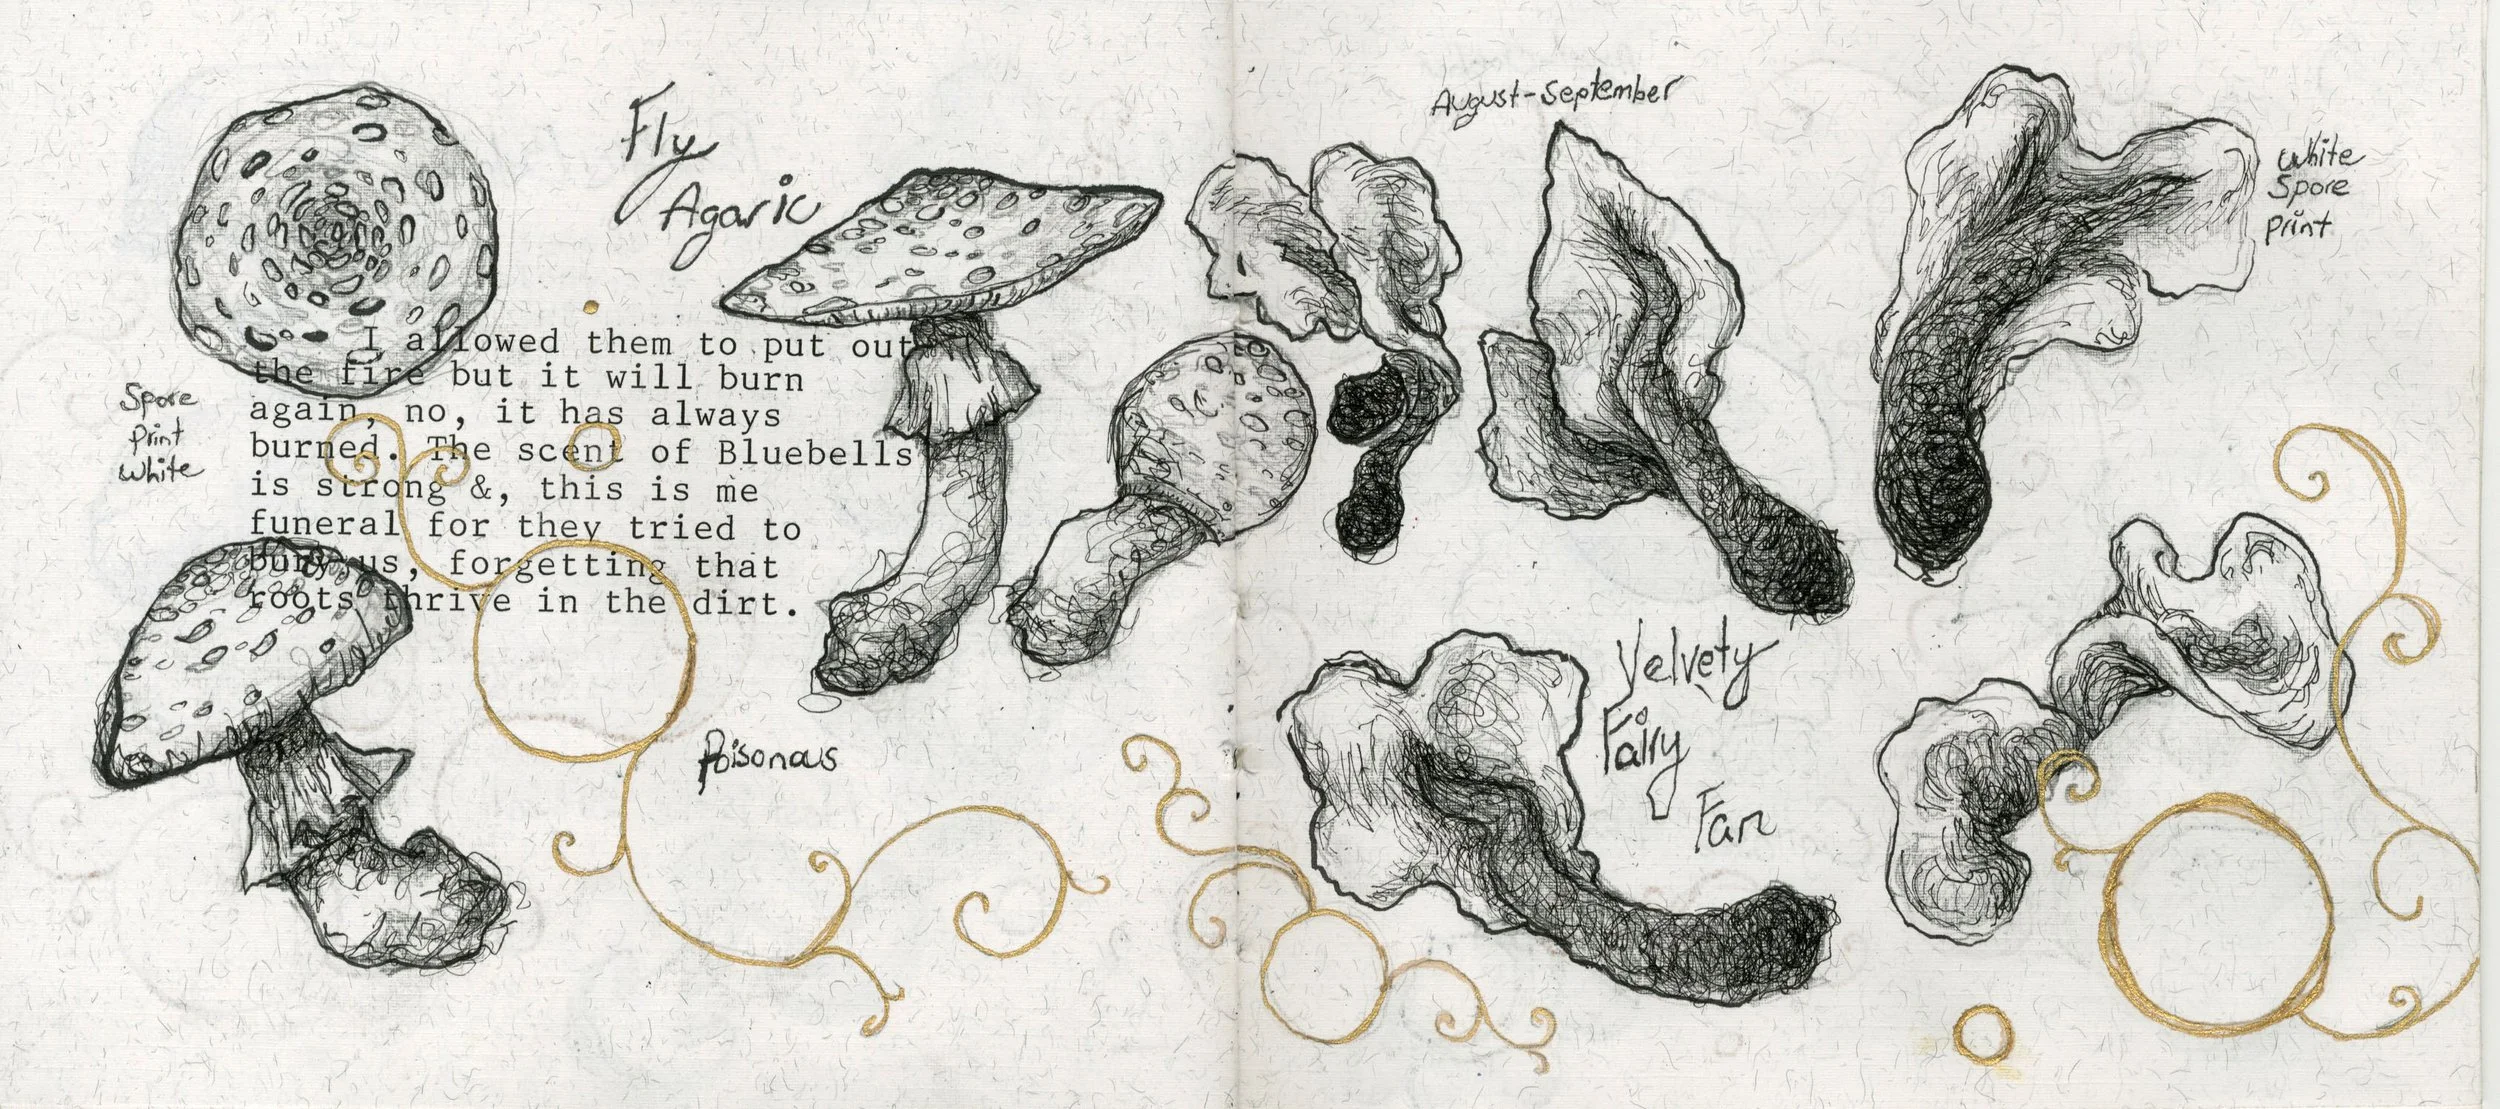 Fly
Agaric
I allowed them to put out
the fire but it will burn
again, no, it has always
burned. The scent of Bluebells
is strong &, this is me
funeral for they tried to
bury us, forgetting that
roots thrive in the dirt.
Spore
print
white
Poisonous
August-September
White
Spore
print
Velvety
Fairy
Fan